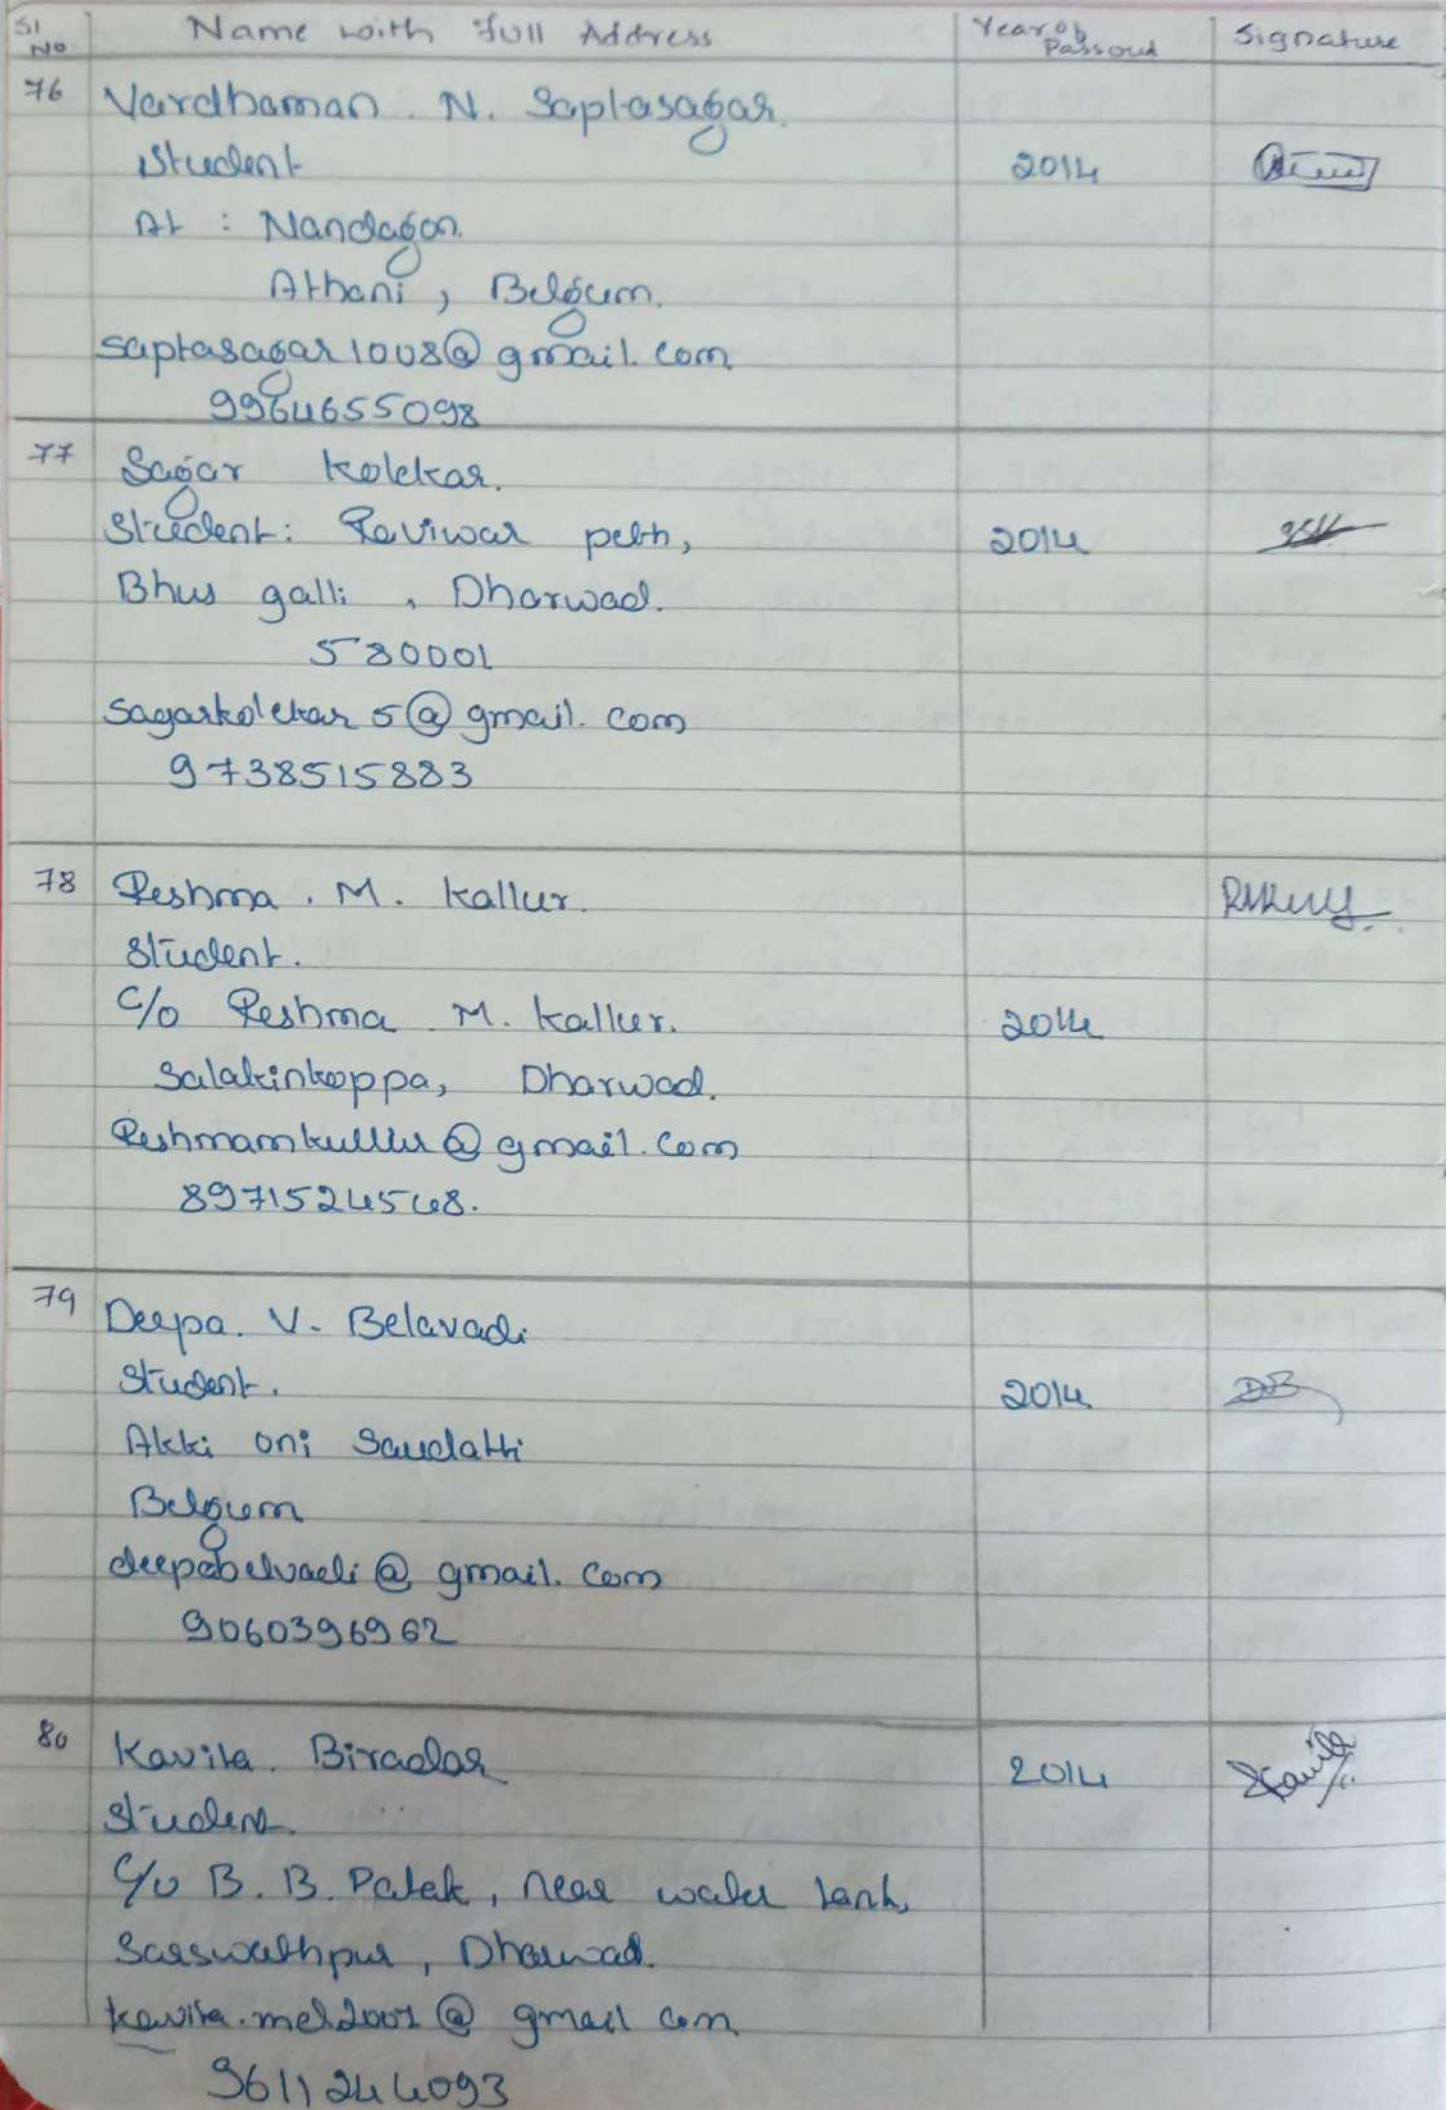 Sl No Name with full Address Year of Passout Signature
76 Vardhaman. N. Saptasagar.
Student 2014
At : Nandagon.
Athani, Belgum.
saptasagar1008@gmail.com
9964655098
77 Sagar Kolekar.
Student: Raviwar peth, 2014
Bhus galli, Dharwad.
580001
sagarkolekar5@gmail.com
9738515883
78 Reshma. M. Kallur.
Student.
C/o Reshma M. Kallur. 2014
Salakinkoppa, Dharwad.
Reshmamkullur@gmail.com
8971524548.
79 Deepa. V. Belavadi
Student. 2014
Akki oni Saudatti
Belgum
deepabelvadi@gmail.com
9060396962
80 Kavita. Biradar 2014 Kavita
Student.
C/o B. B. Patek, near water tank,
Sarswathpur, Dharwad.
@ gmail com
9611244093